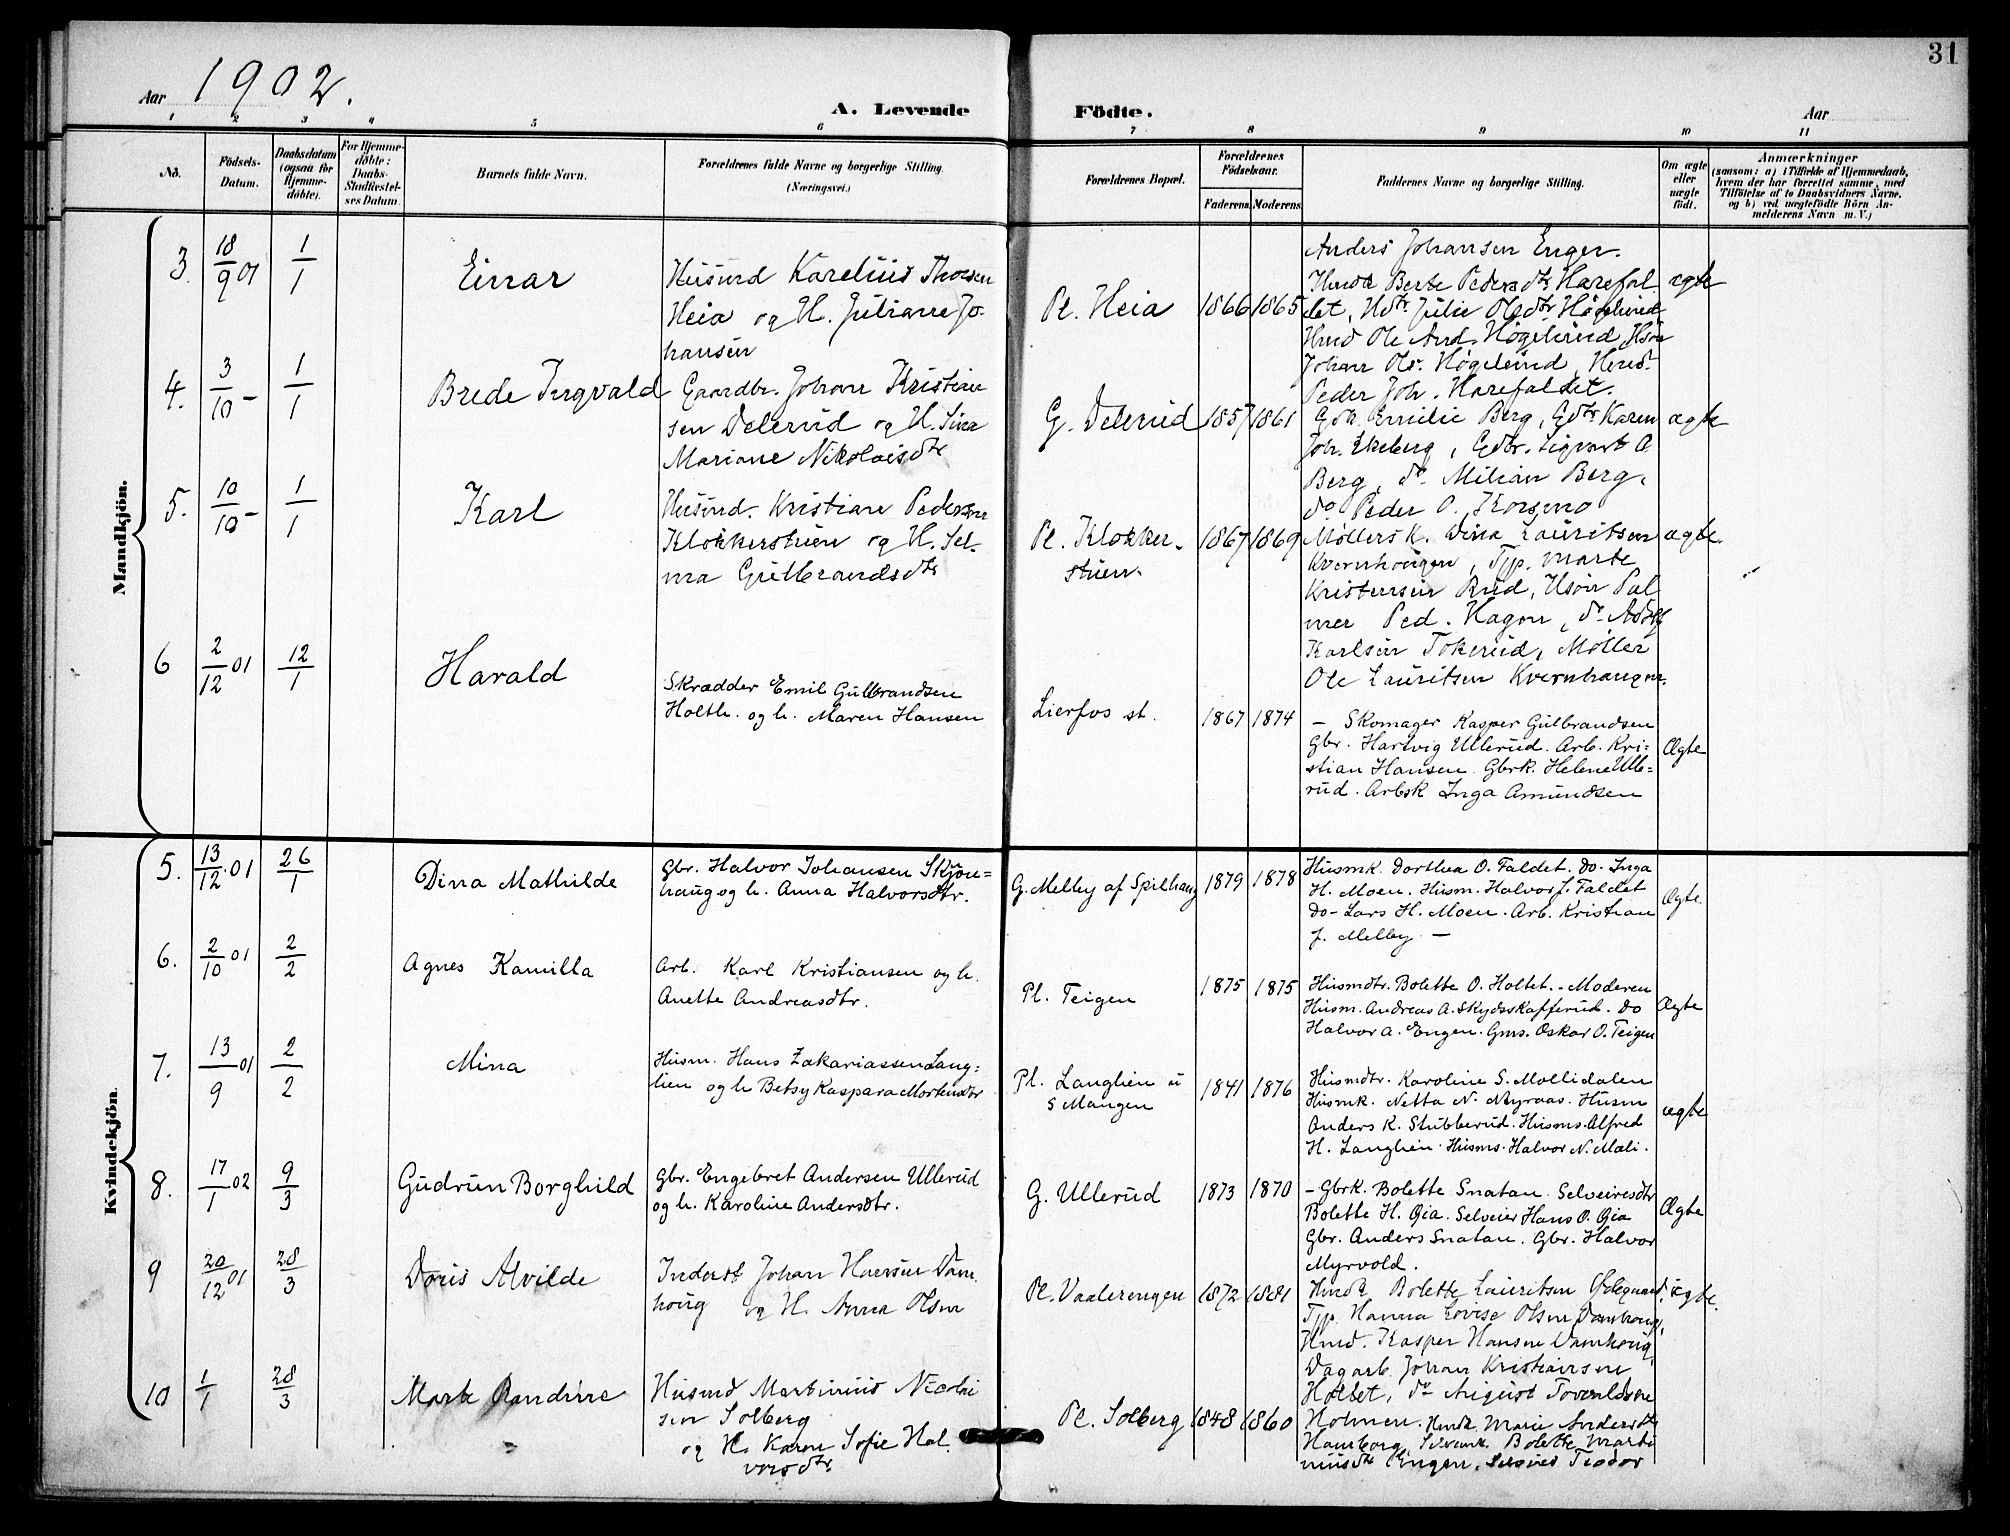 31
Aar 1902.
A. Levende Födte.
Aar
1 2 3 4 5 6 7 8 9 10 11
No.
Födsels-Datum.
Daabsdatum (ogsaa for Hjemme-döbte).
For Hjemme-döbte: Daabs-Stadfæstel-ses Datum.
Barnets fulde Navn.
Forældrenes fulde Navne og borgerlige Stilling. (Næringsvei.)
Forældrenes Bopæl.
Forældrenes Födselsaar.
Faderens. Moderens.
Faddernes Navne og borgerlige Stilling.
Om ægte eller uægte födt.
Anmærkninger
(saasom: a) i Tilfælde af Hjemmedaab,
hvem der har forrettet samme, med
Tilföielse af to Daabsvidners Navne,
og b) ved uægtefödte Börn An-
melderens Navn m. V.)
Mandkjön.
3. 18/9 01 1/1 Einar
Husmd Karelius Thorsen
Heia og H. Juliane Jo-
hansen
Pl. Heia 1866 1865
Anders Johansen Enger.
Hmdk Berte Pedersdtr Harefal
det, Hdtr. Julie Olsdtr Högelund
Hmd Ole And. Høgelund, Hsön
Johan Ols. Høgelund, Hmd.
Peder Joh. Harefaldet.
ægte
4. 3/10 - 1/1 Brede Ingvald
Gaardbr. Johan Kristian
sen Delerud og H. Sina
Mariane Nikolaisdtr
G. Delerud 1857 1861
Gdk Emilie Berg, Gdtr Karen
Joh. Ekeberg, Gdbr. Sigvart A
Berg, do Milian Berg,
do Peder O. Korsmo
ægte
5. 10/10 - 1/1 Karl
Husmd. Kristian Pedersen
Klokkerstuen og H. Sel-
ma Gulbrandsdtr
Pl. Klokker-
stuen.
1867 1869
Møllersk. Dina Lauritsen
Kvernhaugen, Tjp. Marte
Kristensen Rud, Hsön Pal
mer Ped. Hagen, do Adolf
Karlsen Tokerud, Møller
Ole Lauritsen Kvernhaugen.
ægte.
6 2/12 01 12/1 Harald
Skrædder Emil Gulbrandsen
Holth. og h. Maren Hansen
Lierfos st. 1867 1874
- Skomager Kasper Gulbrandsen
Gbr. Hartvig Ullerud. Arb. Kri=
stian Hansen. Gbrk. Helene Ulle=
rud. Arbsk Inga Amundsen
Ægte
Kvindekjön.
5. 13/12 01 26/1 Dina Mathilde
Gbr. Halvor Johansen Skjön=
haug og h. Anna Halvorsdtr.
G. Melby af Spilhaug 1879 1878
Husmk. Dorthea O. Faldet. Do. Inga
H. Moen. Husm. Halvor J. Faldet
Do- Lars H. Moen. Arb. Kristian
J. Melby -
Ægte.
6. 2/10 01 2/2 Agnes Kamilla
Arb. Karl Kristiansen og h.
Anette Andreasdtr.
Pl. Teigen 1875 1875
Husmdtr. Bolette O. Holtet. - Moderen
Husm. Andreas A. Skydsskafferud. Do
Halvor A. Engen. Gms. Oskar O. Teigen
Ægte
7. 13/9 01 2/2 Mina
Husm. Hans Zakariassen Lang=
lien og h Betsy Kaspara Mortensdtr
Pl. Langlien u
S Mangen
1841 1876
Husmdtr. Karoline S. Mollidalen
Husmk. Netta N. Myraas. Husm
Anders K. Stubberud. Husms. Alfred
H. Langlien. Husms. Halvor N. Mali.
ægte
8. 17/1 02 9/3 Gudrun Borghild
Gbr. Engebret Andersen Ullerud
og h. Karoline Andersdtr.
G. Ullerud 1873 1870
- Gbrk. Bolette Snatan. Selveiersdtr
Bolette H. Gia. Selveier Hans O. Gia
Gbr. Anders Snatan. Gbr. Halvor
Myrvold.
Ægte
9 20/12 01 28/3 Doris Alvilde
Inderst Johan Hansen Dam
houg og H. Anna Olsen
Pl. Vaalerengen 1872 1881
Hmdk Bolette Lauritsen Ødegaard
Tjp. Hanna Lovise Olsen Damhoug,
Hmd. Kasper Hansen Damhoug,
Dagarb. Johan Kristiansen
Holtet, do August Torvaldsen
Holmen.
uægte.
10 1/1 28/3 Marte Randine
Husmd Martinius Nicolai
sen Solberg
og H. Karen Sofie Hal.
vorsdtr.
Pl. Solberg 1848 1860
Hmdk Marie Andersdtr
Hamborg, Selveierk. Bolette Marti
niusdtr Engen, Teodor